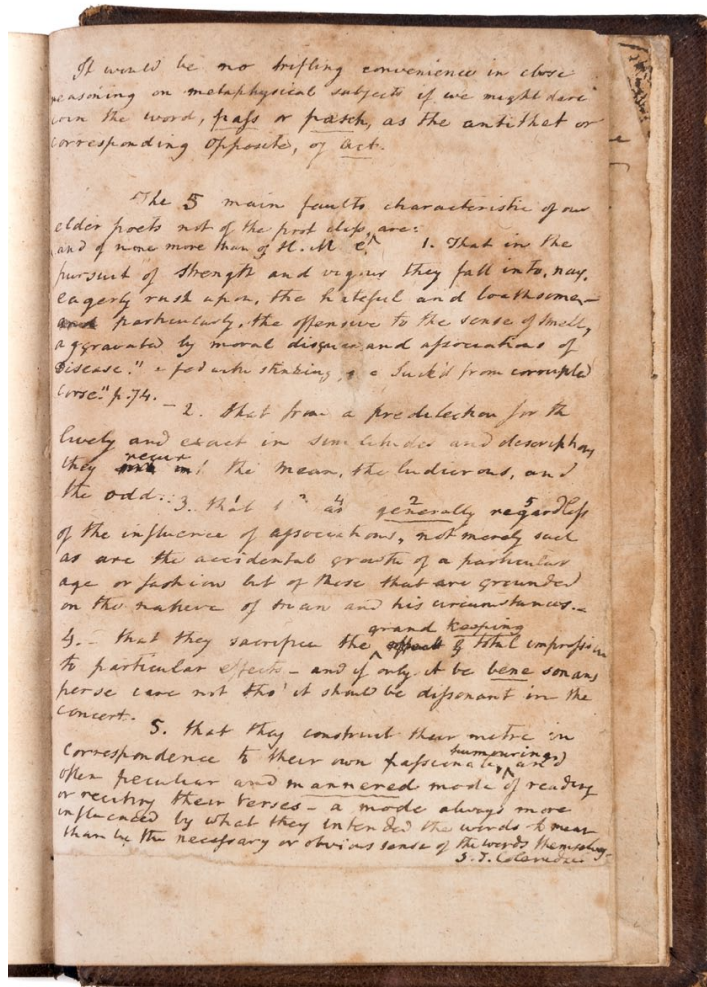 It would be no trifling convenience in close
reasoning on metaphysical subjects if we might dare
coin the word, pass or pasch, as the antithet or
corresponding opposite, of act.
The 5 main faults characteristic of our
elder poets not of the first class, are:
(and of none more than of H. M 1. That in the
pursuit of strength and vigour they fall into, nay,
eagerly rush upon, the hateful and loathsome—
and particularly, the offensive to the sense of smell,
aggravated by moral disgust and associations of
disease." suck'd from corrupted
corse." p. 74.
– 2. that from a predilection for the
lively and exact in similitudes and descriptions
recur
they in! the mean, the ludicrous, and
the odd: 3. that 1 as generally regardless
4 2 5
of the influence of associations, not merely such
as are the accidental growth of a particular
age or fashion but of those that are grounded
on the nature of man and his circumstances.—
grand keeping
4. – that they sacrifice the effect & total impression
to particular effects – and if only it be bene sonans
per se care not tho' it should be dissonant in the
concert.
5. that they construct their metre in
humouring
correspondence to their own passionate, and
often peculiar and mannered mode of reading
or reciting their verses – a mode always more
influenced by what they intended the words to mean
than by the necessary or obvious sense of the words themselves.
S. T. Coleridge